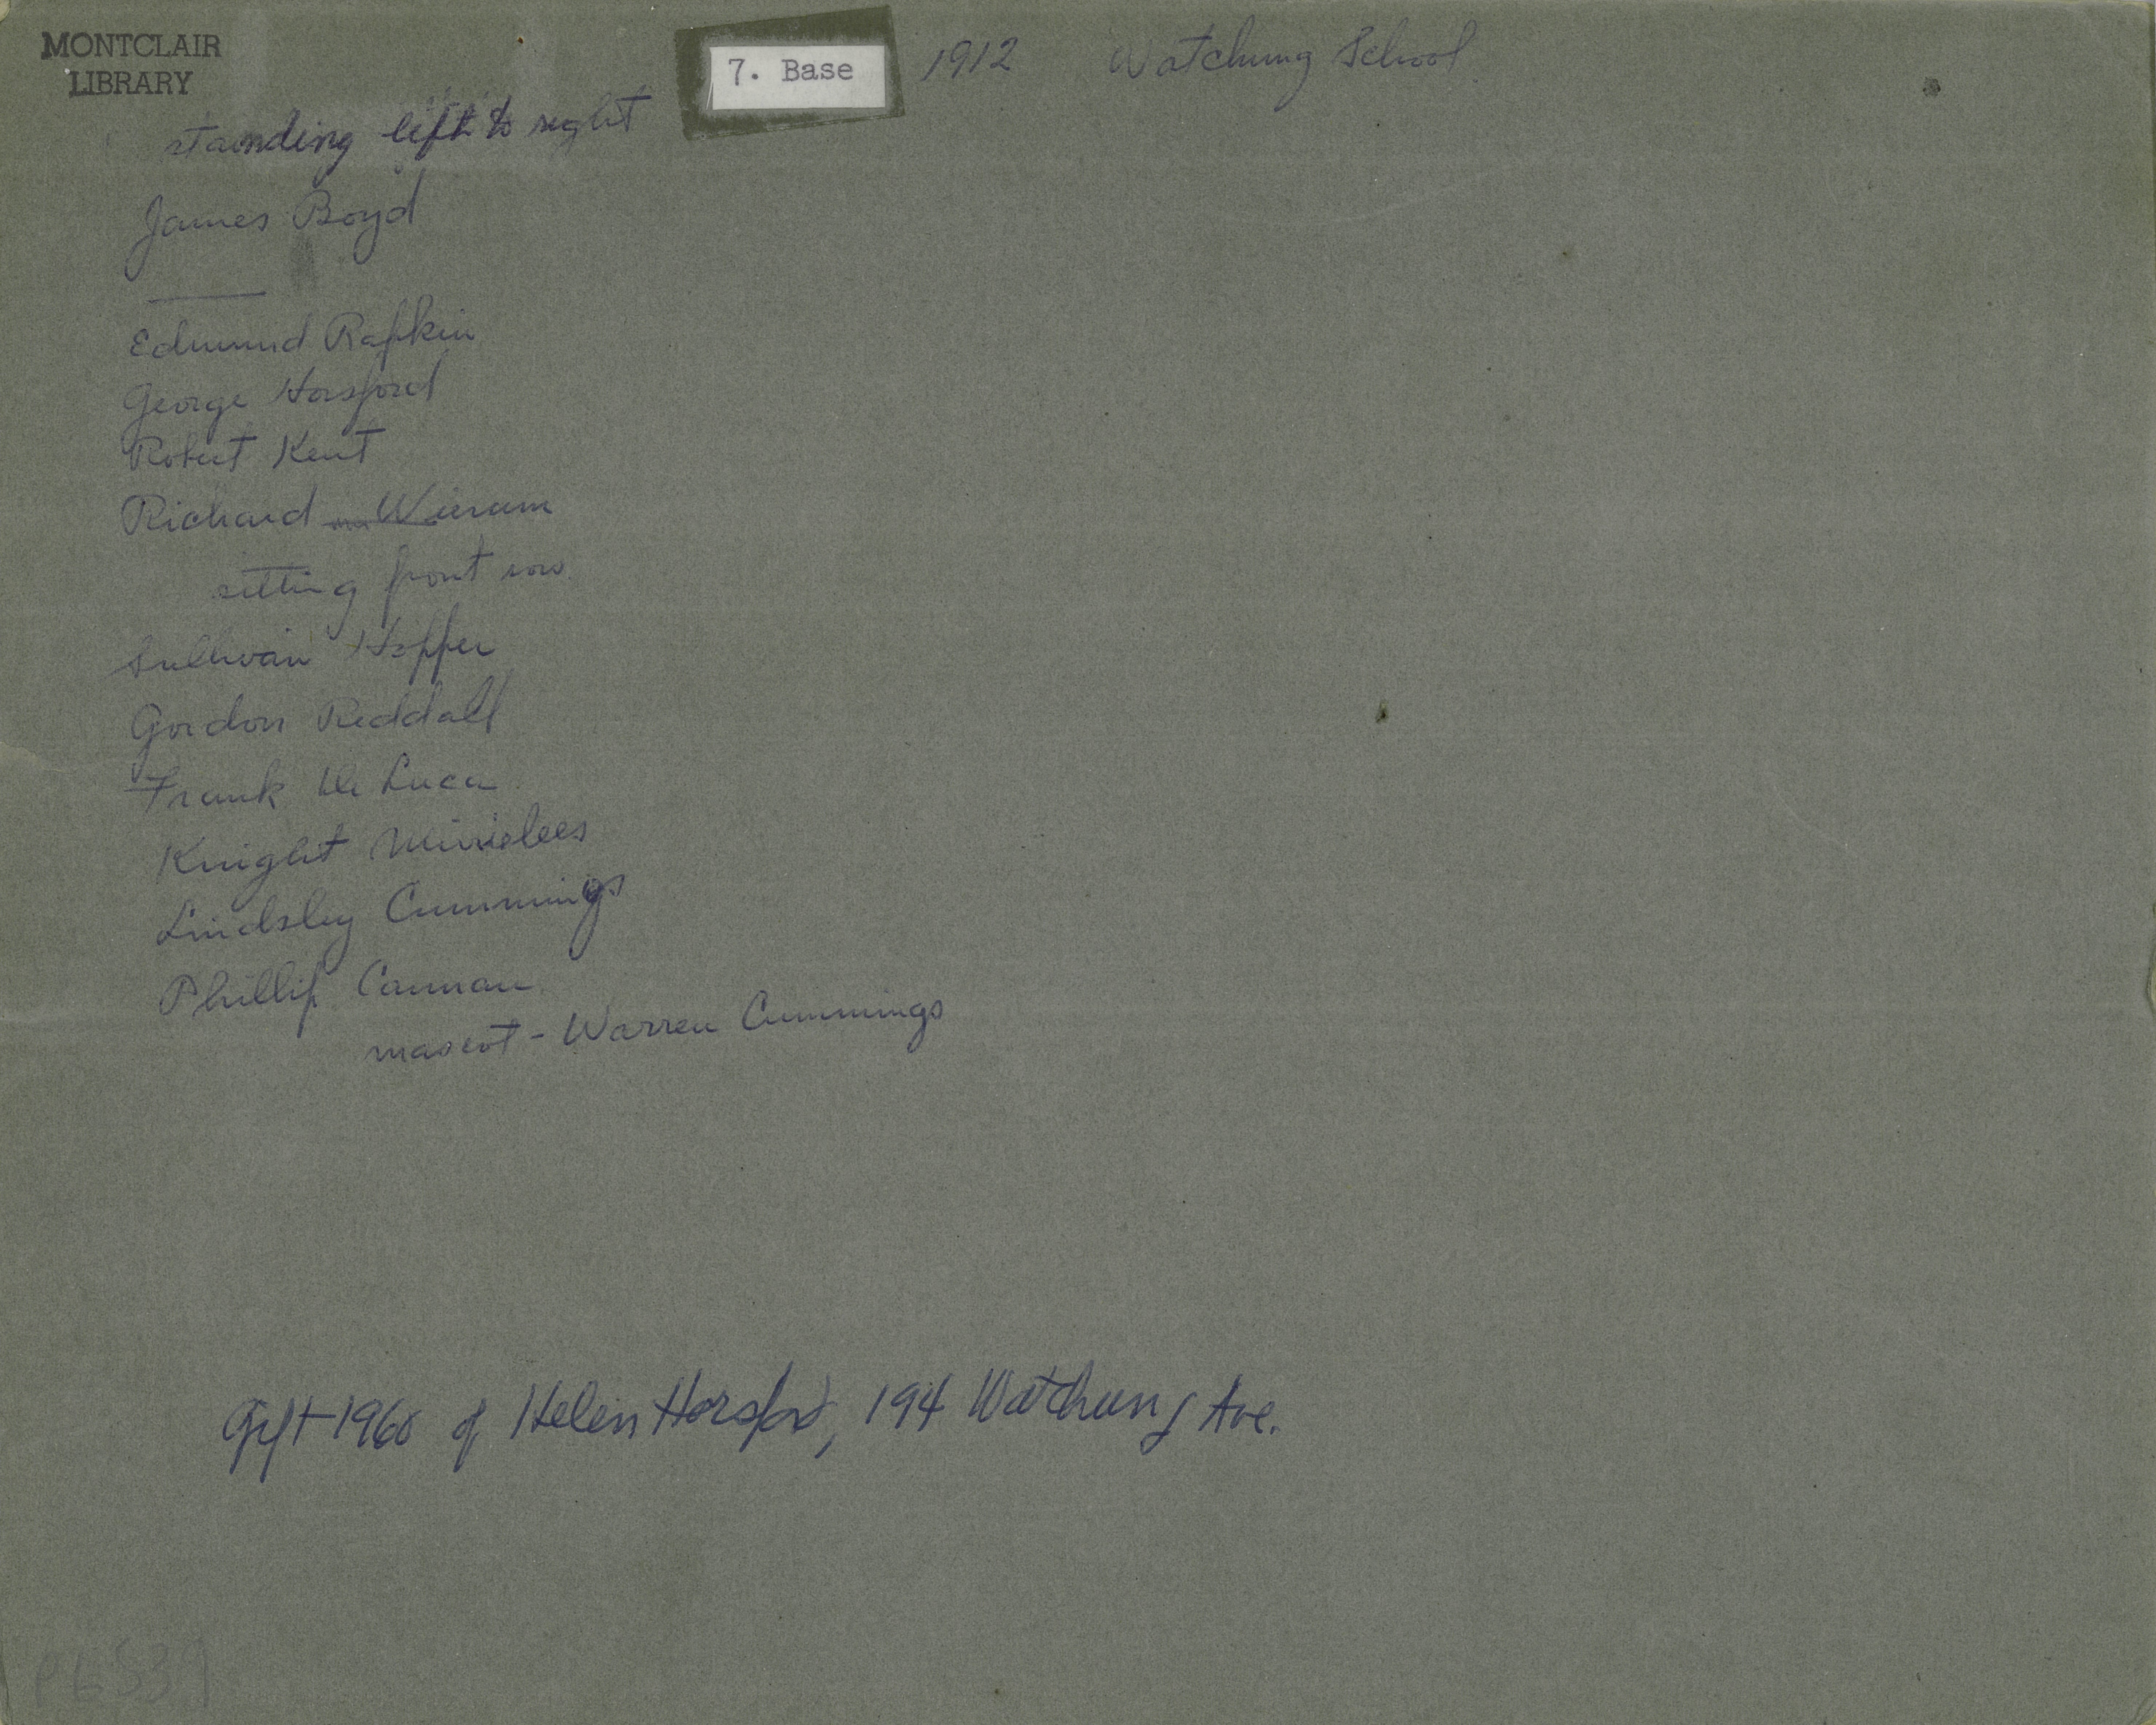 MONTCLAIR
LIBRARY
7. Base
1912 Watchung School
standing left to right
James Boyd
Edmund Rafkin
George Horsford
Robert Kent
Richard
sitting front row
Sullivan Hopper
Gordon Reddall
Frank De Luca
Knight Mirrielees
Lindsley Cummings
Phillip
mascot - Warren Cummings
Gift 1960 of Helen Horsford, 194 Watchung Ave.